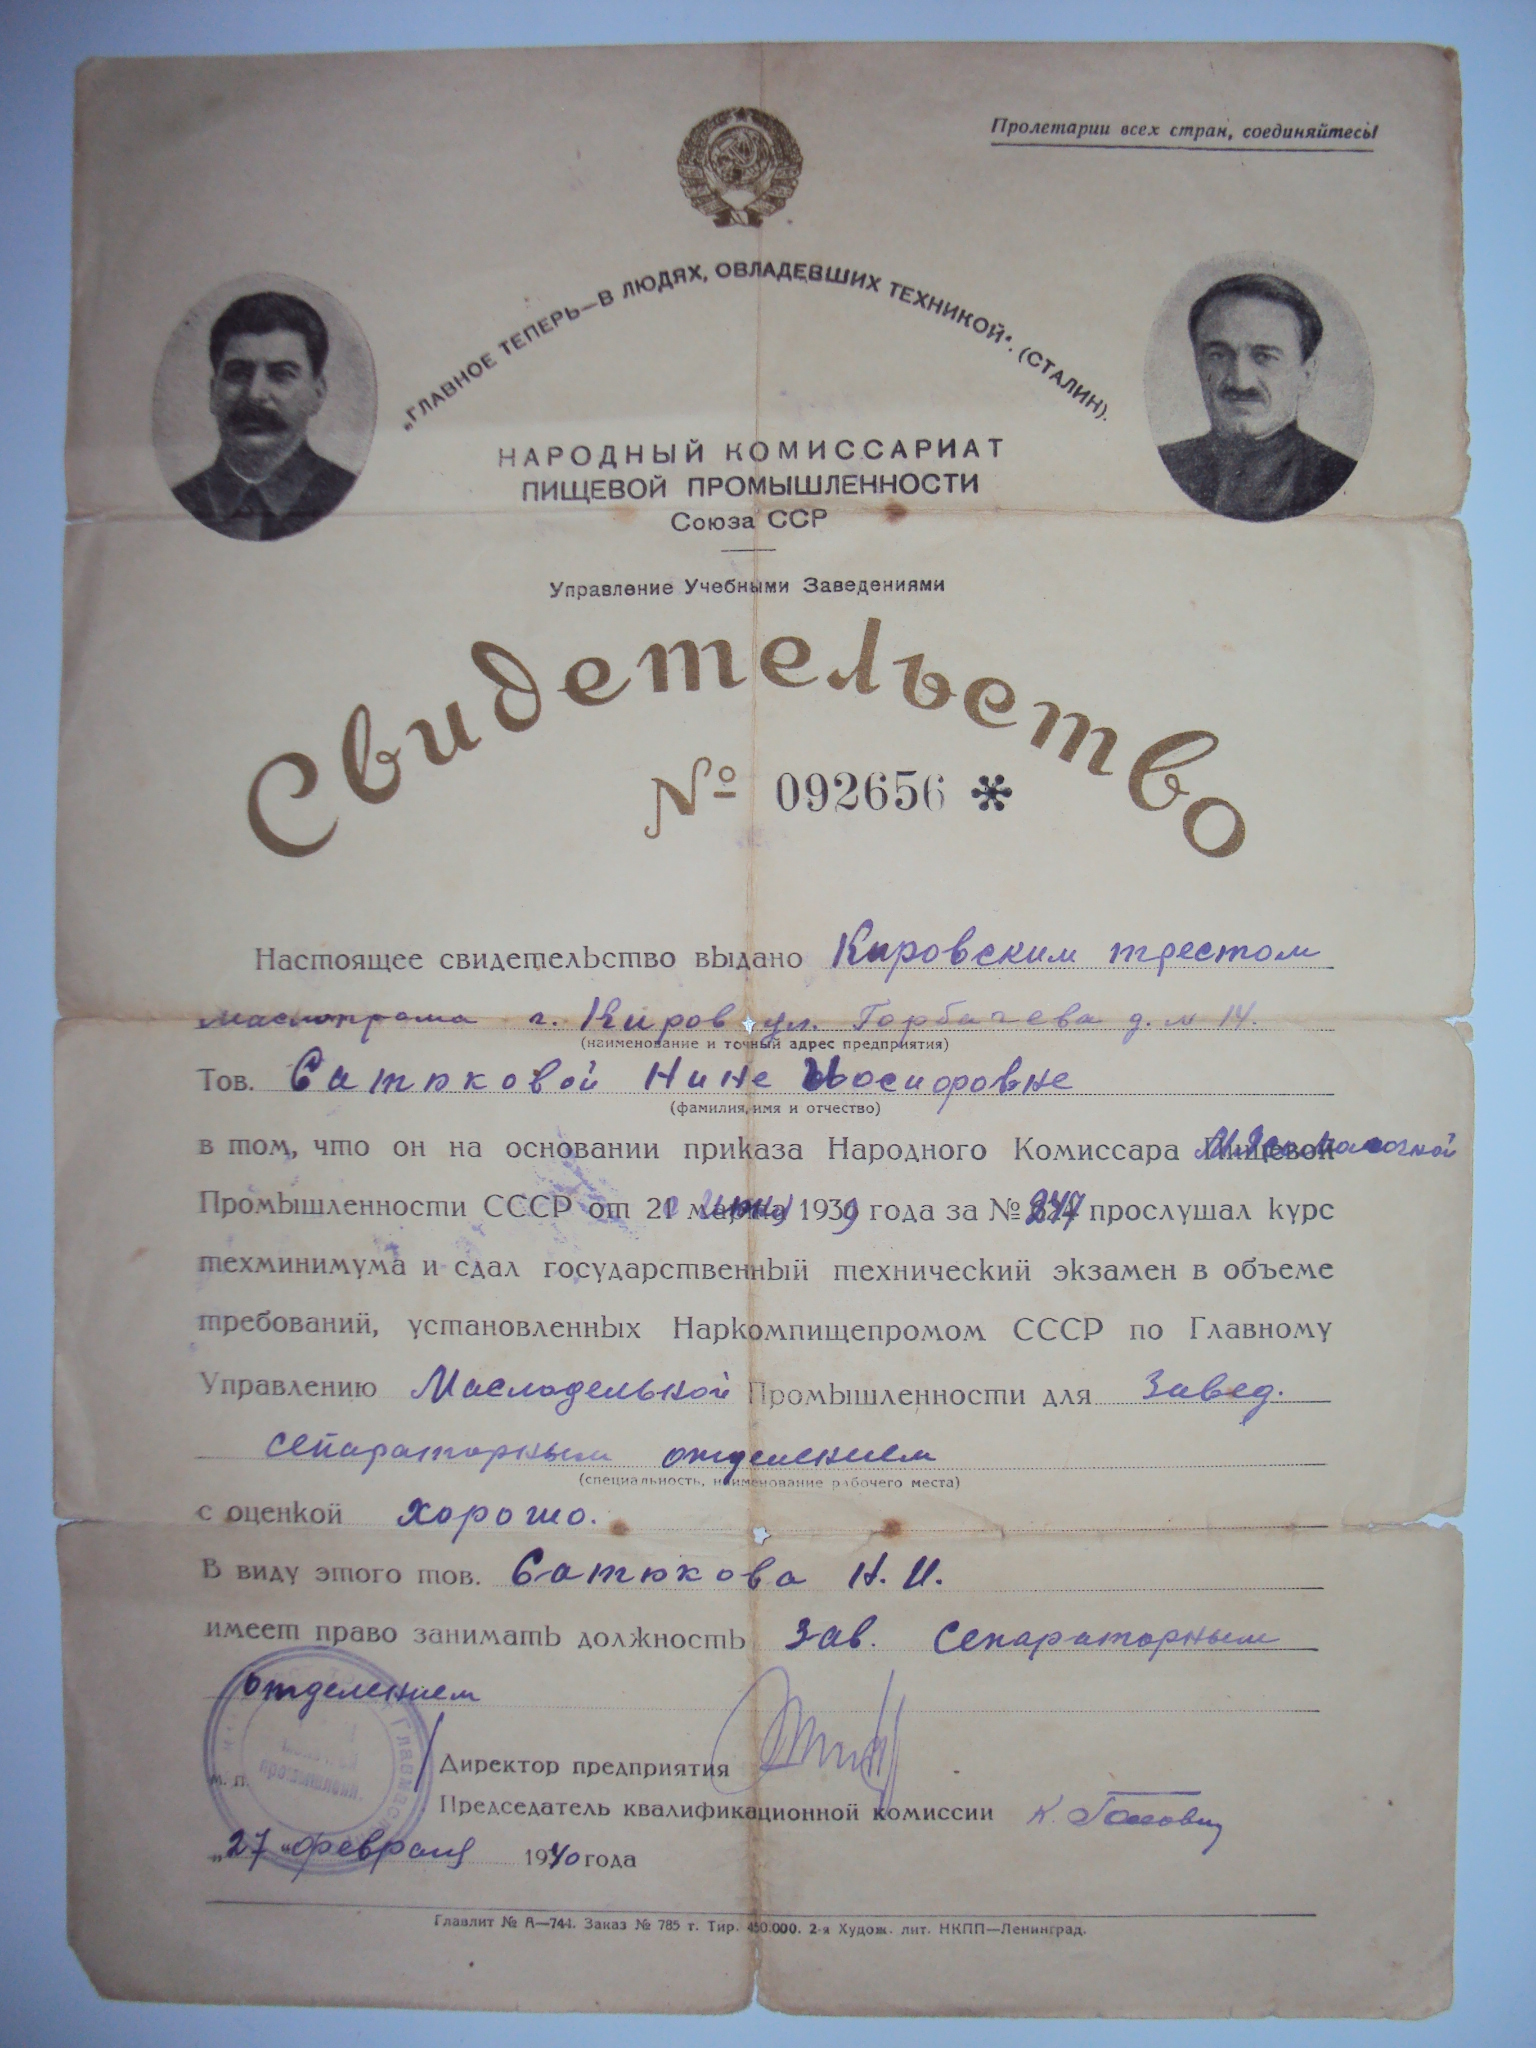 Пролетарии всех стран, соединяйтесь!
„ГЛАВНОЕ ТЕПЕРЬ—В ЛЮДЯХ, ОВЛАДЕВШИХ ТЕХНИКОЙ“. (СТАЛИН).
НАРОДНЫЙ КОМИССАРИАТ
ПИЩЕВОЙ ПРОМЫШЛЕННОСТИ
Союза ССР
Управление Учебными Заведениями
Свидетельство
№ 092656 *
Настоящее свидетельство выдано Кировским трестом
Маслопрома г. Киров ул. Горбачева д. № 14.
(наименование и точный адрес предприятия)
Тов. Сатюковой Нине Иосиповне
(фамилия, имя и отчество)
в том, что он на основании приказа Народного Комиссара Пищевой
Промышленности СССР от 21 1939 года за № прослушал курс
техминимума и сдал государственный технический экзамен в объеме
требований, установленных Наркомпищепромом СССР по Главному
Управлению Маслодельной Промышленности для Завед.
сепараторным отделением
(специальность, наименование рабочего места)
с оценкой хорошо.
В виду этого тов. Сатюкова Н. И.
имеет право занимать должность Зав. Сепараторным
отделением
м. п.
Директор предприятия
Председатель квалификационной комиссии
„27“ февраля 1940 года
Главлит № А—744. Заказ № 785 т. Тир. 450.000. 2-я Худож. лит. НКПП—Ленинград.